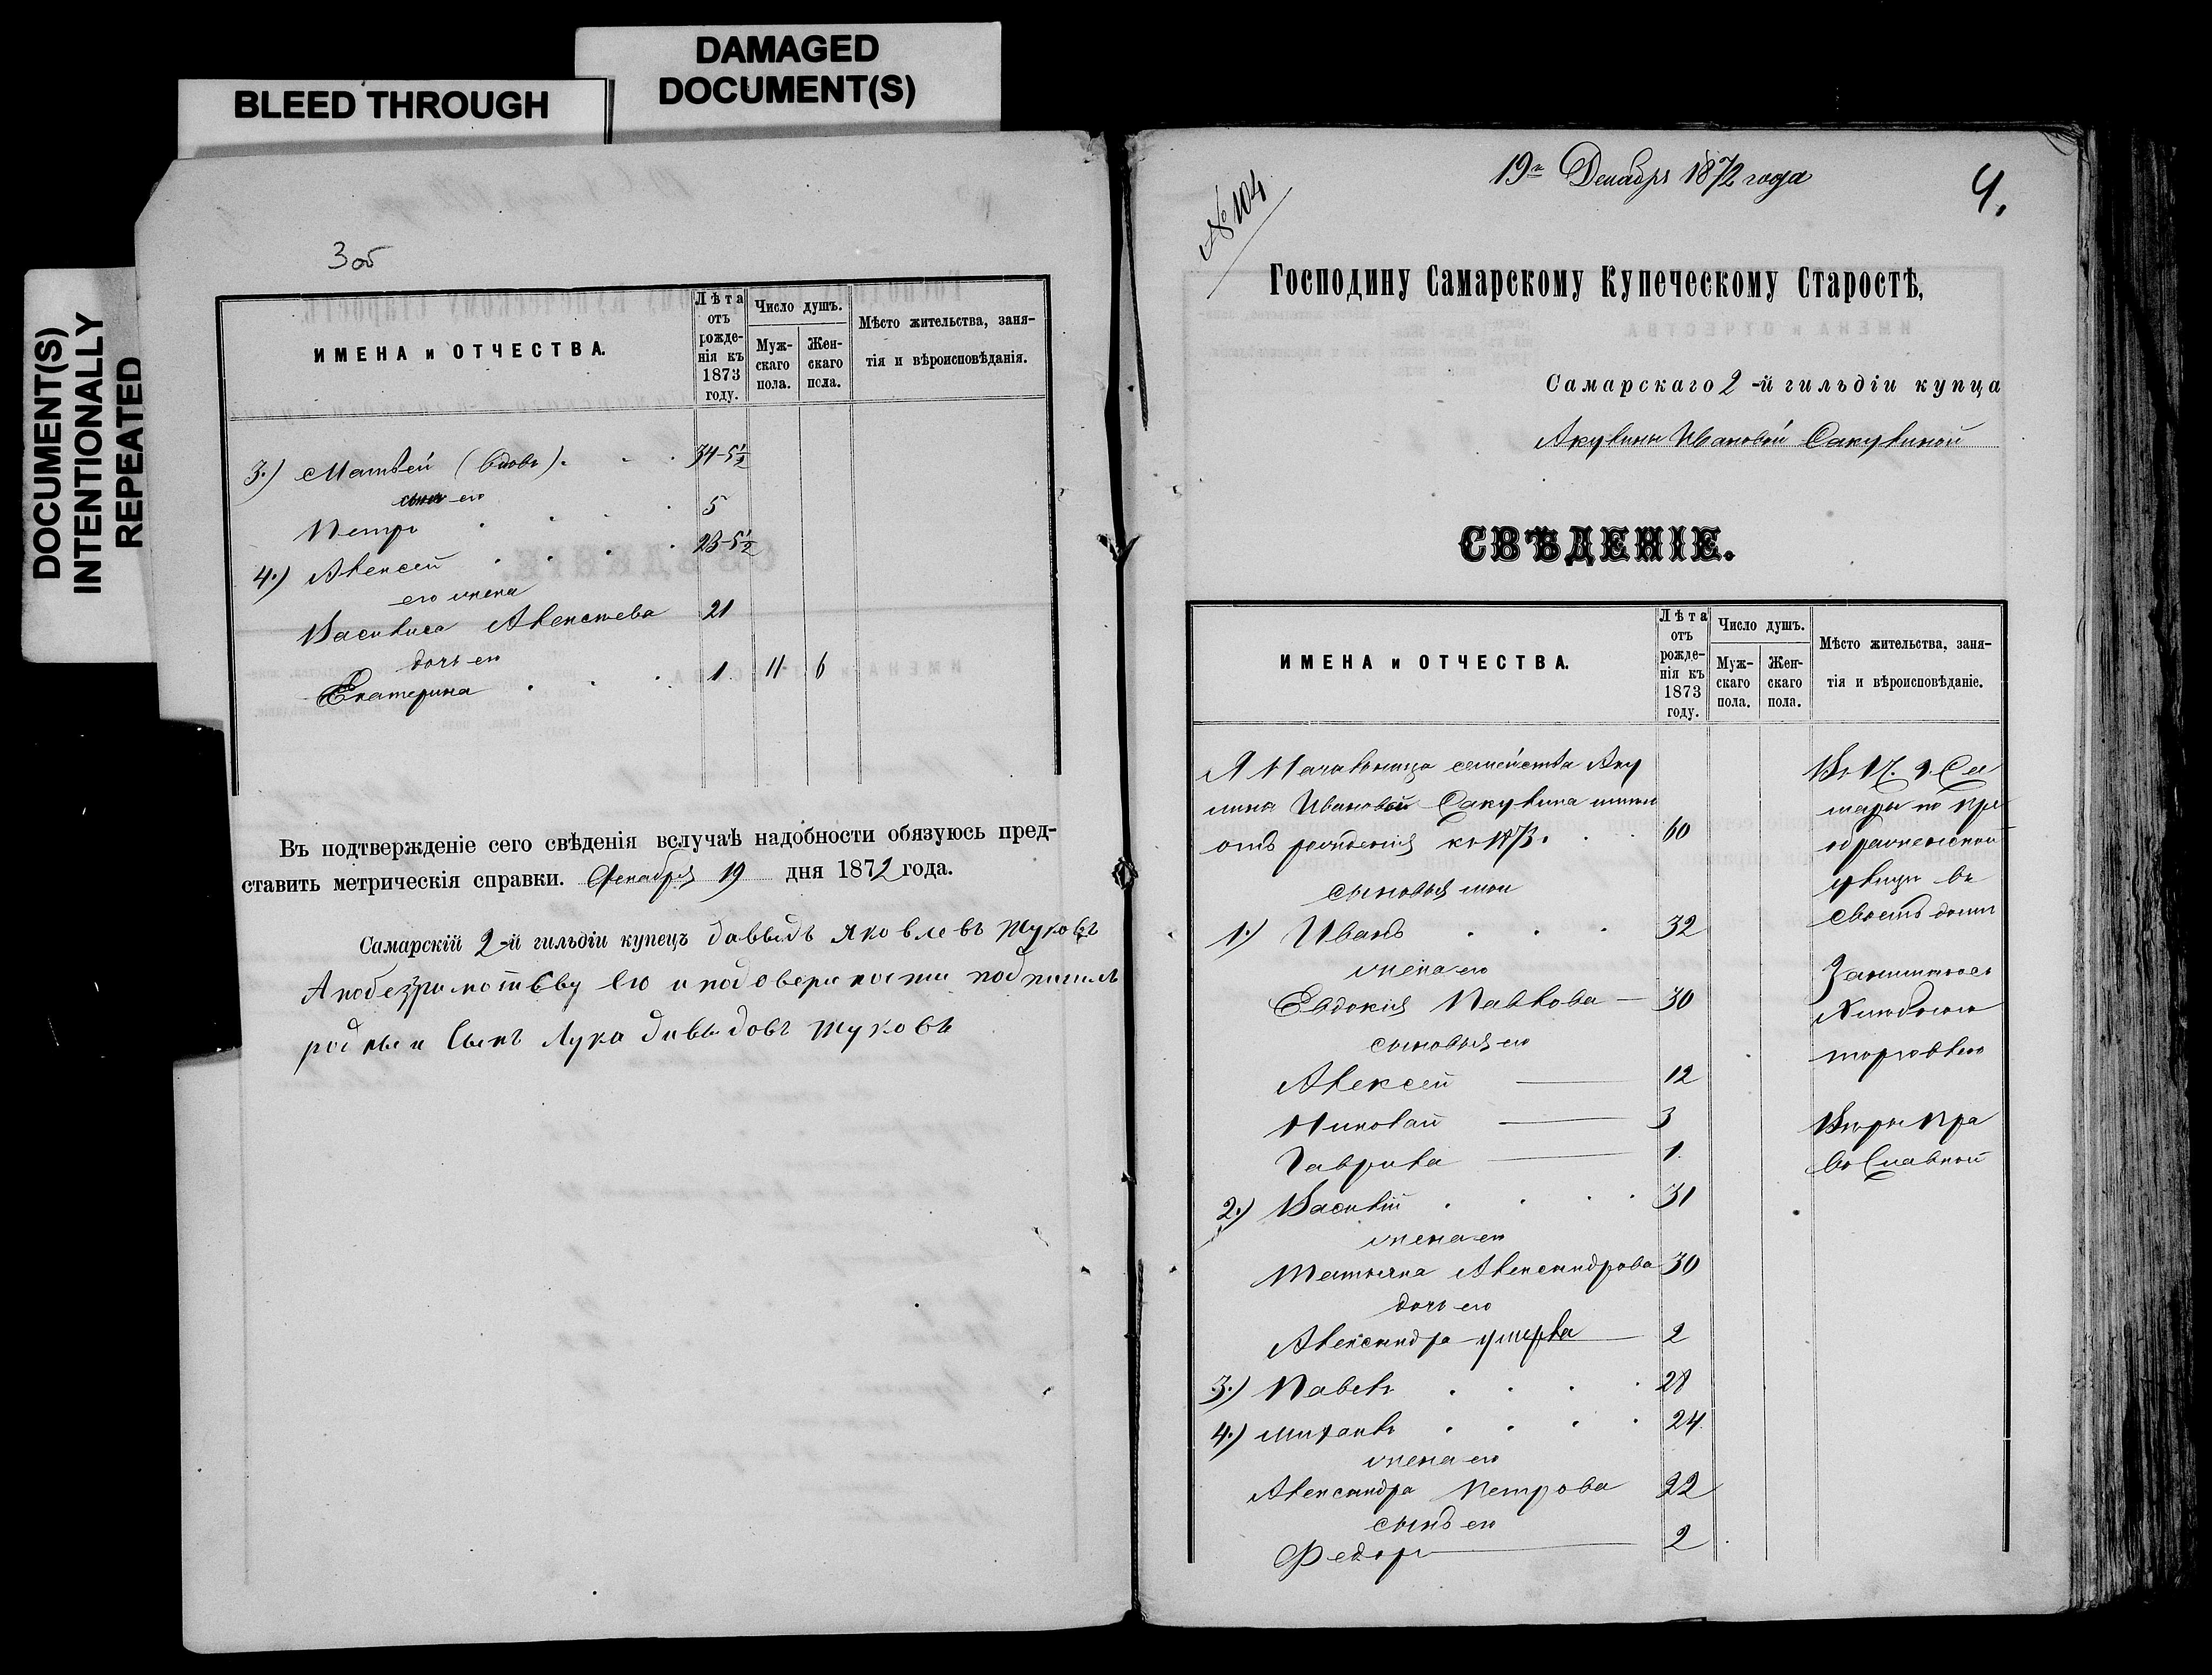 BLEED THROUGH
DAMAGED
DOCUMENT(S)
DOCUMENT(S)
INTENTIONALLY
REPEATED
3об
ИМЕНА и ОТЧЕСТВА.
Лѣта
отъ
рожде-
нія къ
1873
году.
Число душъ.
Муж-
скаго
пола.
Жен-
скаго
пола.
Мѣсто жительства, заня-
тія и вѣроисповѣданія.
3.) Матвей (вдовъ) 34-5½
сынъ его
Петръ 5
4.) Алексей 23-5½
его жена
Василиса Алексеева 21
дочь его
Екатерина 1. 11 6
Въ подтвержденіе сего свѣденія вслучаѣ надобности обязуюсь пред-
ставить метрическія справки. Декабря 19 дня 1872 года.
Самарскій 2-й гильдіи купецъ давыдъ Яковлевъ Жуковъ
А побезграмотству Его иподоверенности подписалъ
родный Сынъ Лука давыдовъ Жуковъ
№ 104
19го Декабря 1872 года
4.
Господину Самарскому Купеческому Старостѣ,
Самарскаго 2-й гильдіи купца
Акулины Ивановой Сакулиной
СВѢДЕНІЕ.
ИМЕНА и ОТЧЕСТВА.
Лѣта
отъ
рожде-
нія къ
1873
году.
Число душъ.
Муж-
скаго
пола.
Жен-
скаго
пола.
Мѣсто жительства, заня-
тія и вѣроисповѣданіе.
Я Начальница семейства Аку
лина Ивановой Сакулина
отъ рожденія къ 1873. 60
сыновья мои
1.) Иванъ 32
жена его
Евдокія Павлова 30
сыновья его
Алексей 12
Николай 3
Гаврила 1.
2.) Василій 31
жена его
Татьяна Александрова 30
дочь его
Александра умерла 2
3.) Павелъ 28
4.) Михаилъ 24
жена его
Александра Петрова 22
сынъ его
Федоръ 2
Въ г. Са
мары по Пре
ображенской
улицы въ
своемъ доми
Занимаюсь
Хлебною
торговлею
Веры Пра
вославной